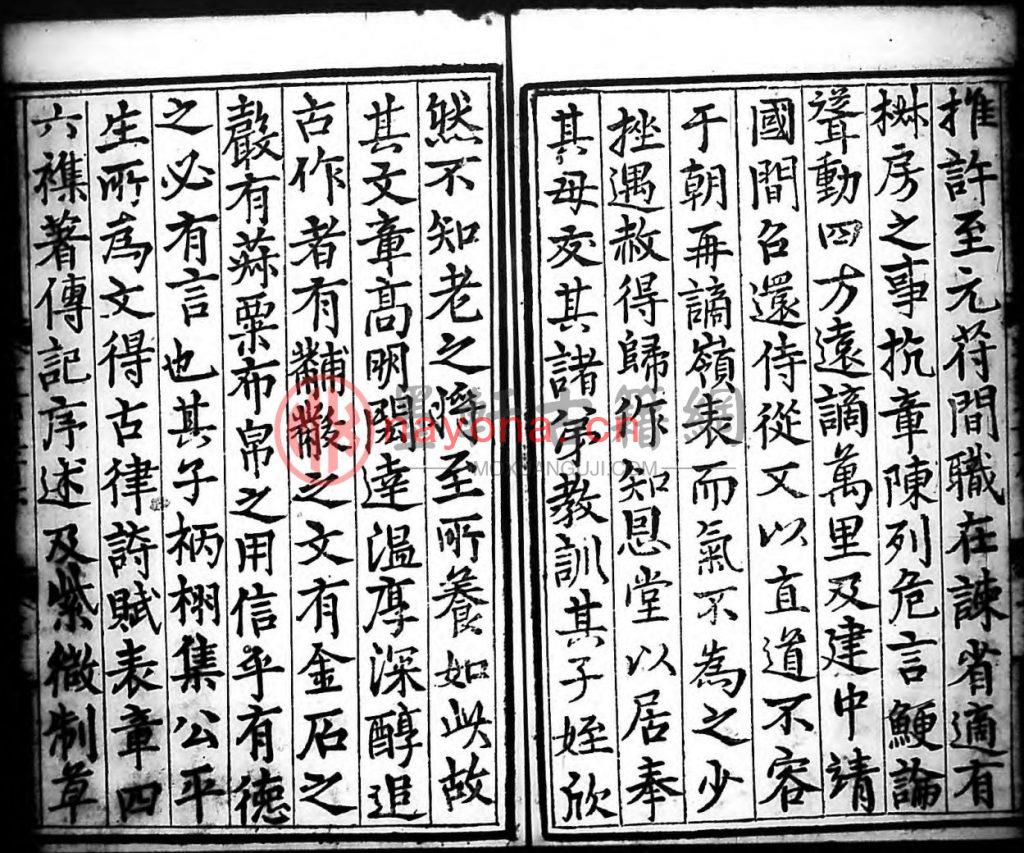 推許至元符間職在諫省適有
椒房之事抗章陳列危言鯁論
聳動四方遠謫萬里及建中靖
國間召還侍從又以直道不容
于朝再謫嶺表而氣不為之少
挫遇赦得歸作知恩堂以居奉
其母交其諸弟教訓其子姪欣
然不知老之將至所養如此故
其文章高明碩達温厚深醇追
古作者有黼黻之文有金石之
嚴有菽粟布帛之用信乎有德
之必有言也其子柄栩集公平
生所爲文得古律詩賦表章四
六襍著傳記序述及紫微制草
墨軒古籍網
nayona.cn
MOXUANGUJI.COM